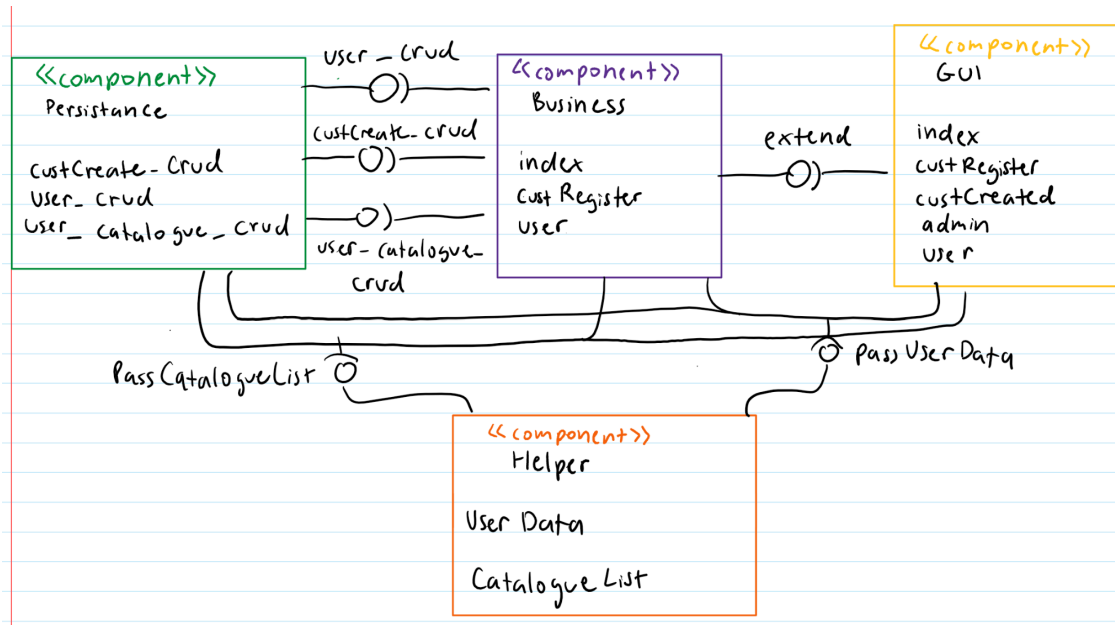 <<component>>
Persistance
custCreate_Crud
user_Crud
user_catalogue_Crud
user_Crud
custCreate_crud
user_catalogue_
crud
<<component>>
Business
index
custRegister
user
extend
<<component>>
GUI
index
custRegister
custCreated
admin
user
PassCatalogueList
PassUserData
<<component>>
Helper
User Data
Catalogue List